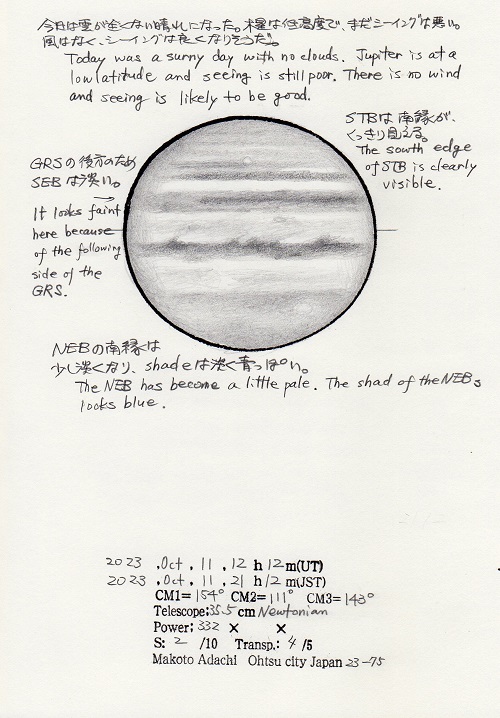 今日は雲が全くない晴れになった。木星は低高度で、まだシーイングは悪い。
風はなく、シーイングは良くなりそうだ。
Today was a sunny day with no clouds. Jupiter is at a
low latitude and seeing is still poor. There is no wind
and seeing is likely to be good.
STBは南縁が、
くっきり見える。
The south edge
of STB is clearly
visible.
GRSの後方のため
SEBは淡い。
It looks faint
here because
of the following
side of the
GRS.
NEBの南縁は
少し淡くなり、shadeは淡く青っぽい。
The NEB has become a little pale. The shad of the NEBs
looks blue.
2023 .Oct. 11 , 12 h 12 m(UT)
2023 .Oct. 11 , 21 h 12 m(JST)
CM1= 154° CM2= 111° CM3= 143°
Telescope; 35.5 cm Newtonian
Power; 332 × ×
S: 2 /10 Transp.: 4 /5
Makoto Adachi Ohtsu city Japan 23-75